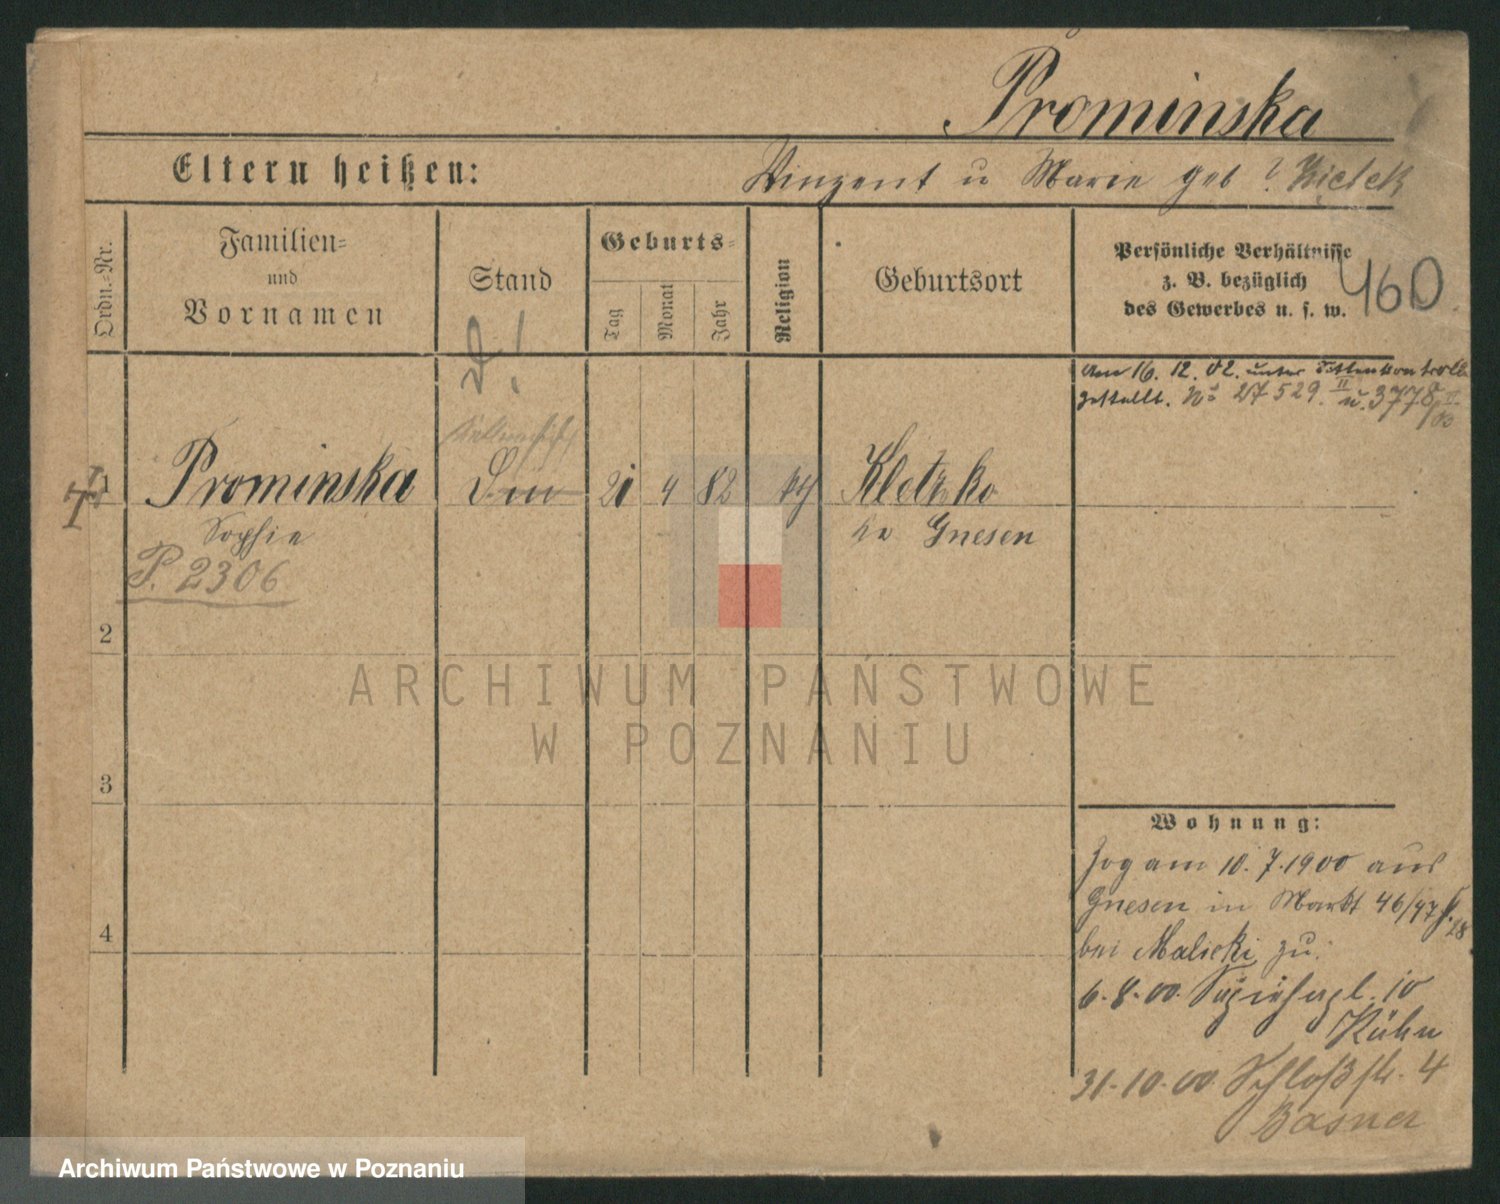 Prominska
Eltern heißen: Vinzent u Marie geb ? Kielek
Ordn.-Nr.
Familien-
und
Vornamen
Stand
Geburts-
Tag
Monat
Jahr
Religion
Geburtsort
Persönliche Verhältnisse
z. B. bezüglich
des Gewerbes u. s. w.
460
Am 16. 12. 02. unter Sittenkontrolle
gestellt. No 27529. II u. 3778/
1 Prominska 21 4 82 kth Kletzko
Sophie Kr Gnesen
P. 2306
2
3
4
Wohnung:
Zog am 10.7.1900 aus
Gnesen in Markt 46/47
bei Malicki zu.
6.8.00. 10
Kühn
31.10.00. Schloßstr. 4
Basner
ARCHIWUM PAŃSTWOWE
W POZNANIU
Archiwum Państwowe w Poznaniu